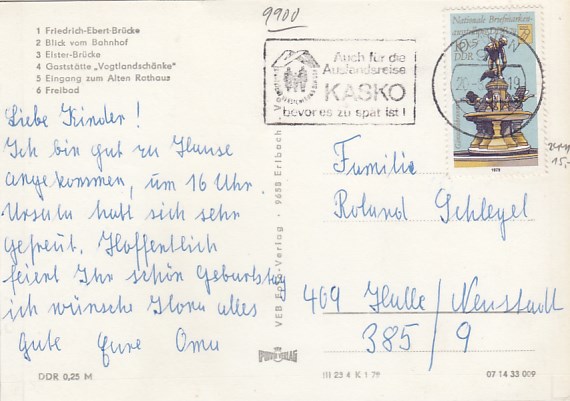 9900
1 Friedrich-Ebert-Brücke
2 Blick vom Bahnhof
3 Elster-Brücke
4 Gaststätte „Vogtlandschänke"
5 Eingang zum Alten Rathaus
6 Freibad
Liebe Kinder!
Ich bin gut zu Hause
angekommen, um 16 Uhr
Ursula hatt sich sehr
gefreut. Hoffentlich
feiert Ihr schön Geburtstag
ich wünsche Ilona alles
Gute Eure Oma
DDR 0,25 M
VEB Verlag · 9653 Erlbach i. V
Auch für die
Auslandsreise
KASKO
bevor es zu spät ist!
Nationale Briefmarken
DDR
1979
15,-
Familie
Roland Schlegel
409 Halle/Neustadt
385/9
VERLAG
III 23 4 K 1 79
07 14 33 009